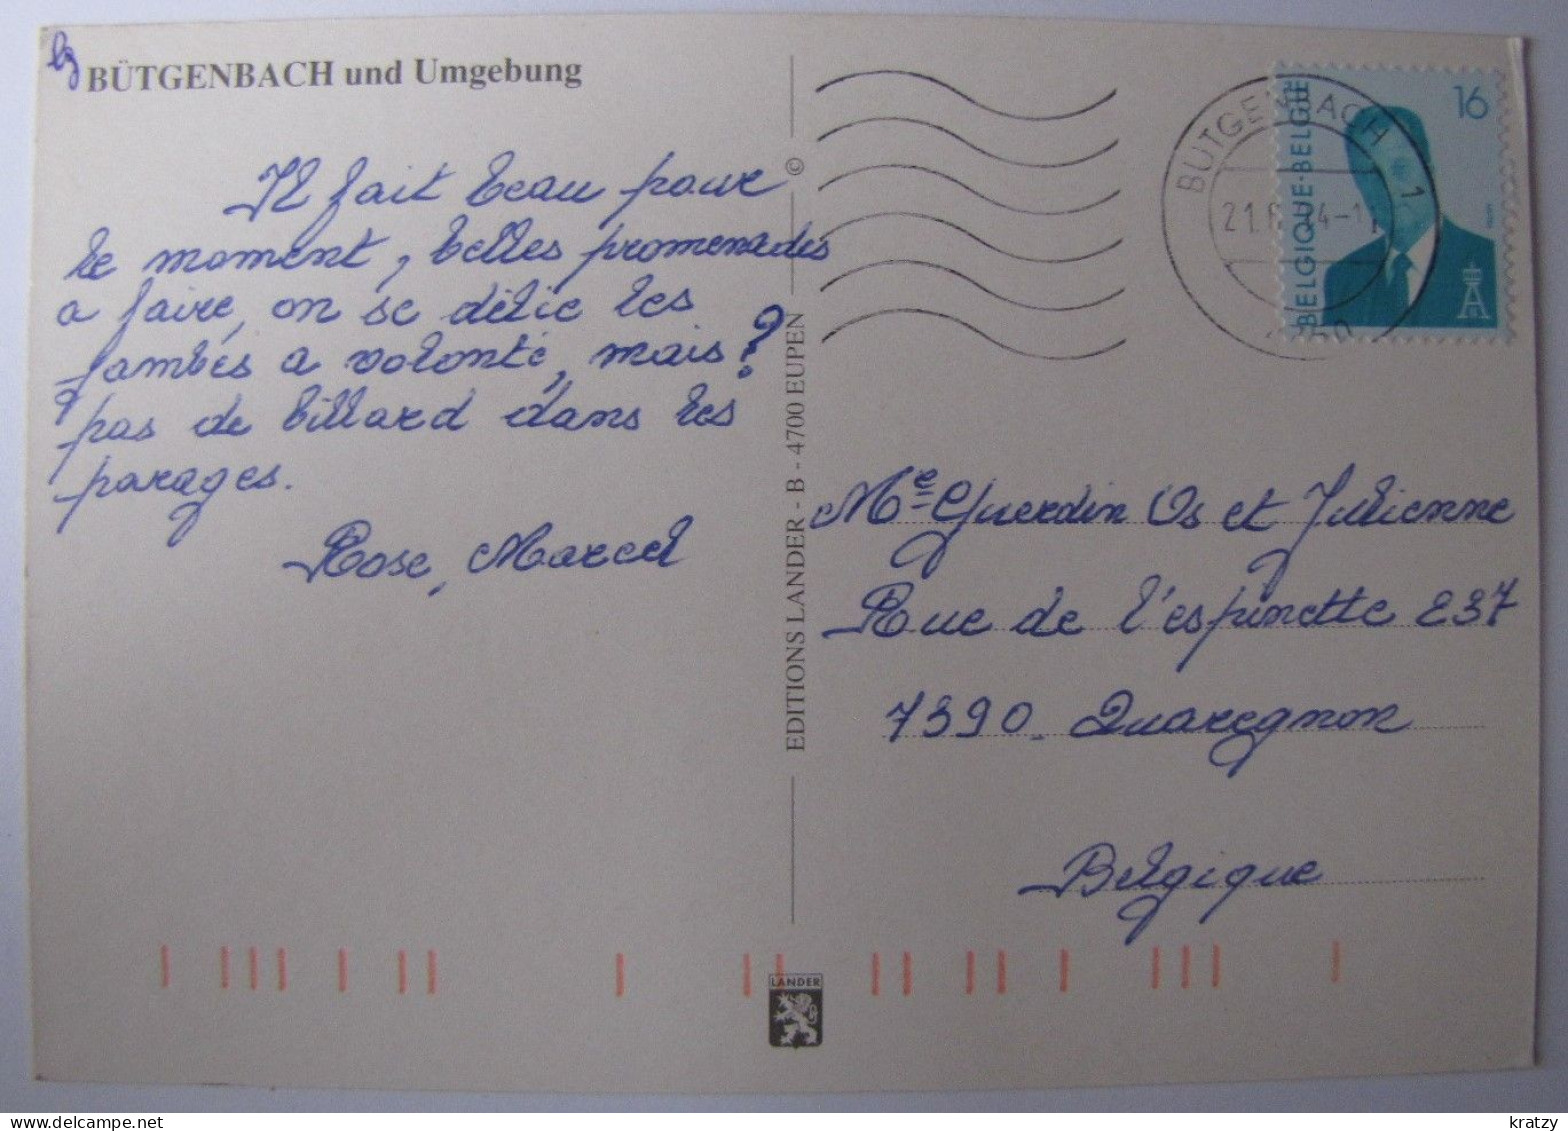 BÜTGENBACH und Umgebung
Il fait beau pour
le moment, belles promenades
a faire, on se délie les
jambes a volonté, mais?
pas de billard dans les
parages.
Rose, Marcel
EDITIONS LANDER - B - 4700 EUPEN
©
BÜTGENBACH 1
BELGIQUE·BELGIE
16
Me Guerdin Os et Julienne
Rue de l'espinette 237
7390. Quaregnon
Belgique
LANDER
kratzy